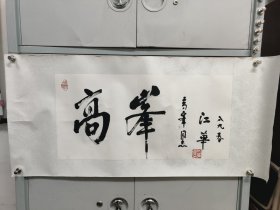 高峯
高峯同志
江華
八九春